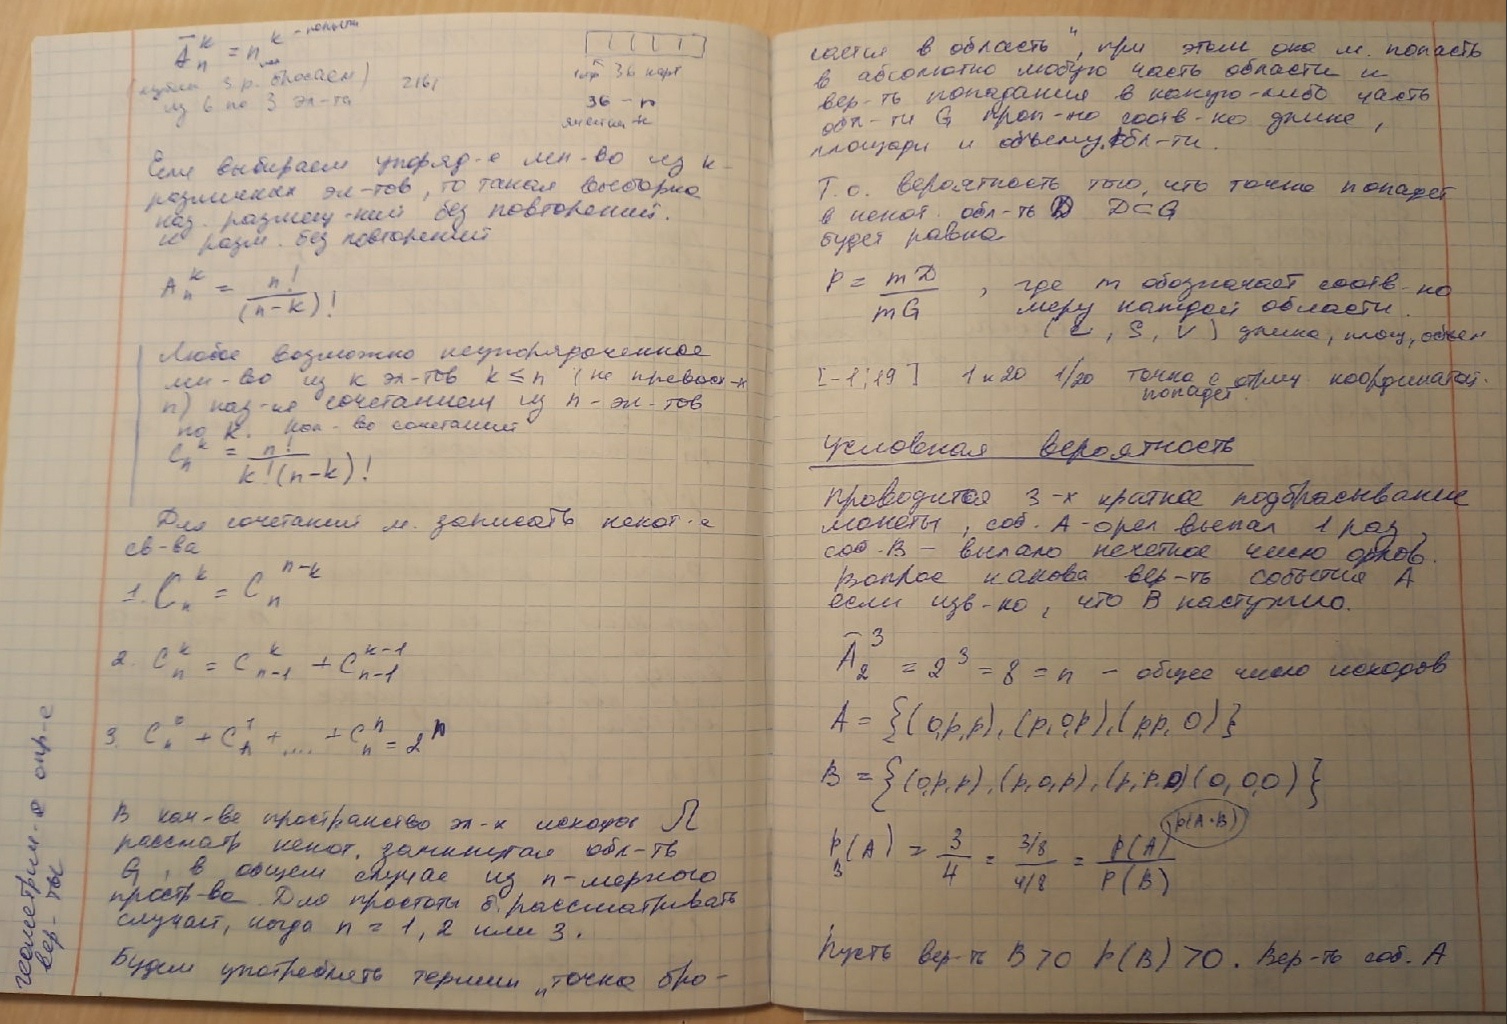 Ā_n^k = n^k - попыти
(кубик 3 р. бросаем) 216
из 6 по 3 эл-та
36 карт
36 - n
ячейки - k
Если выбираем упоряд-е мн-во из к-
различных эл-тов, то такая выборка
наз. размещ-ний без повторений.
и разм. без повторений
A_n^k = n! / (n-k)!
Любое возможно неупорядоченное
мн-во из к эл-тов k ≤ n (не превосх-х
n) наз-ся сочетанием из n-эл-тов
по k. кол-во сочетаний
C_n^k = n! / k!(n-k)!
Для сочетаний м. записать некот-е
св-ва
1. C_n^k = C_n^{n-k}
2. C_n^k = C_{n-1}^k + C_{n-1}^{k-1}
3. C_n^0 + C_n^1 + .... + C_n^n = 2^n
геометрич-е опр-е
вер-ты
В кач-ве пространство эл-х исходов Ω
рассматр некот. замкнутая обл-ть
G, в общем случае из n-мерного
простр-ва. Для простоты б. рассматривать
случаи, когда n = 1, 2 или 3.
Будем употреблять термин „точка бро-
сается в область", при этом она м. попасть
в абсолютно любую часть области и
вер-ть попадания в какую-либо часть
обл-ти G проп-но соотв-но длине,
площади и объему обл-ти.
Т.о. вероятность того, что точка попадет
в некот. обл-ть D D⊂G
будет равна
P = mD / mG , где m обозначает соотв-но
меру каждой области.
(L, S, V) длина, площ, объем
[-1; 19] 1 и 20 1/20 точка с отриц. координатой.
попадет.
Условная вероятность
Проводится 3-х кратное подбрасывание
монеты, соб. А - орел выпал 1 раз,
соб. В - выпало нечетное число орлов.
Вопрос какова вер-ть события А
если изв-но, что В наступило.
Ā_2^3 = 2^3 = 8 = n - общее число исходов
A = {(о,р,р), (р,о,р), (р,р,о)}
B = {(о,р,р), (р,о,р), (р,р,о) (о,о,о)}
P_B(A) = 3/4 = (3/8)/(4/8) = P(A)/P(B) P(A·B)
Пусть вер-ть B>0 P(B)>0. Вер-ть соб. А